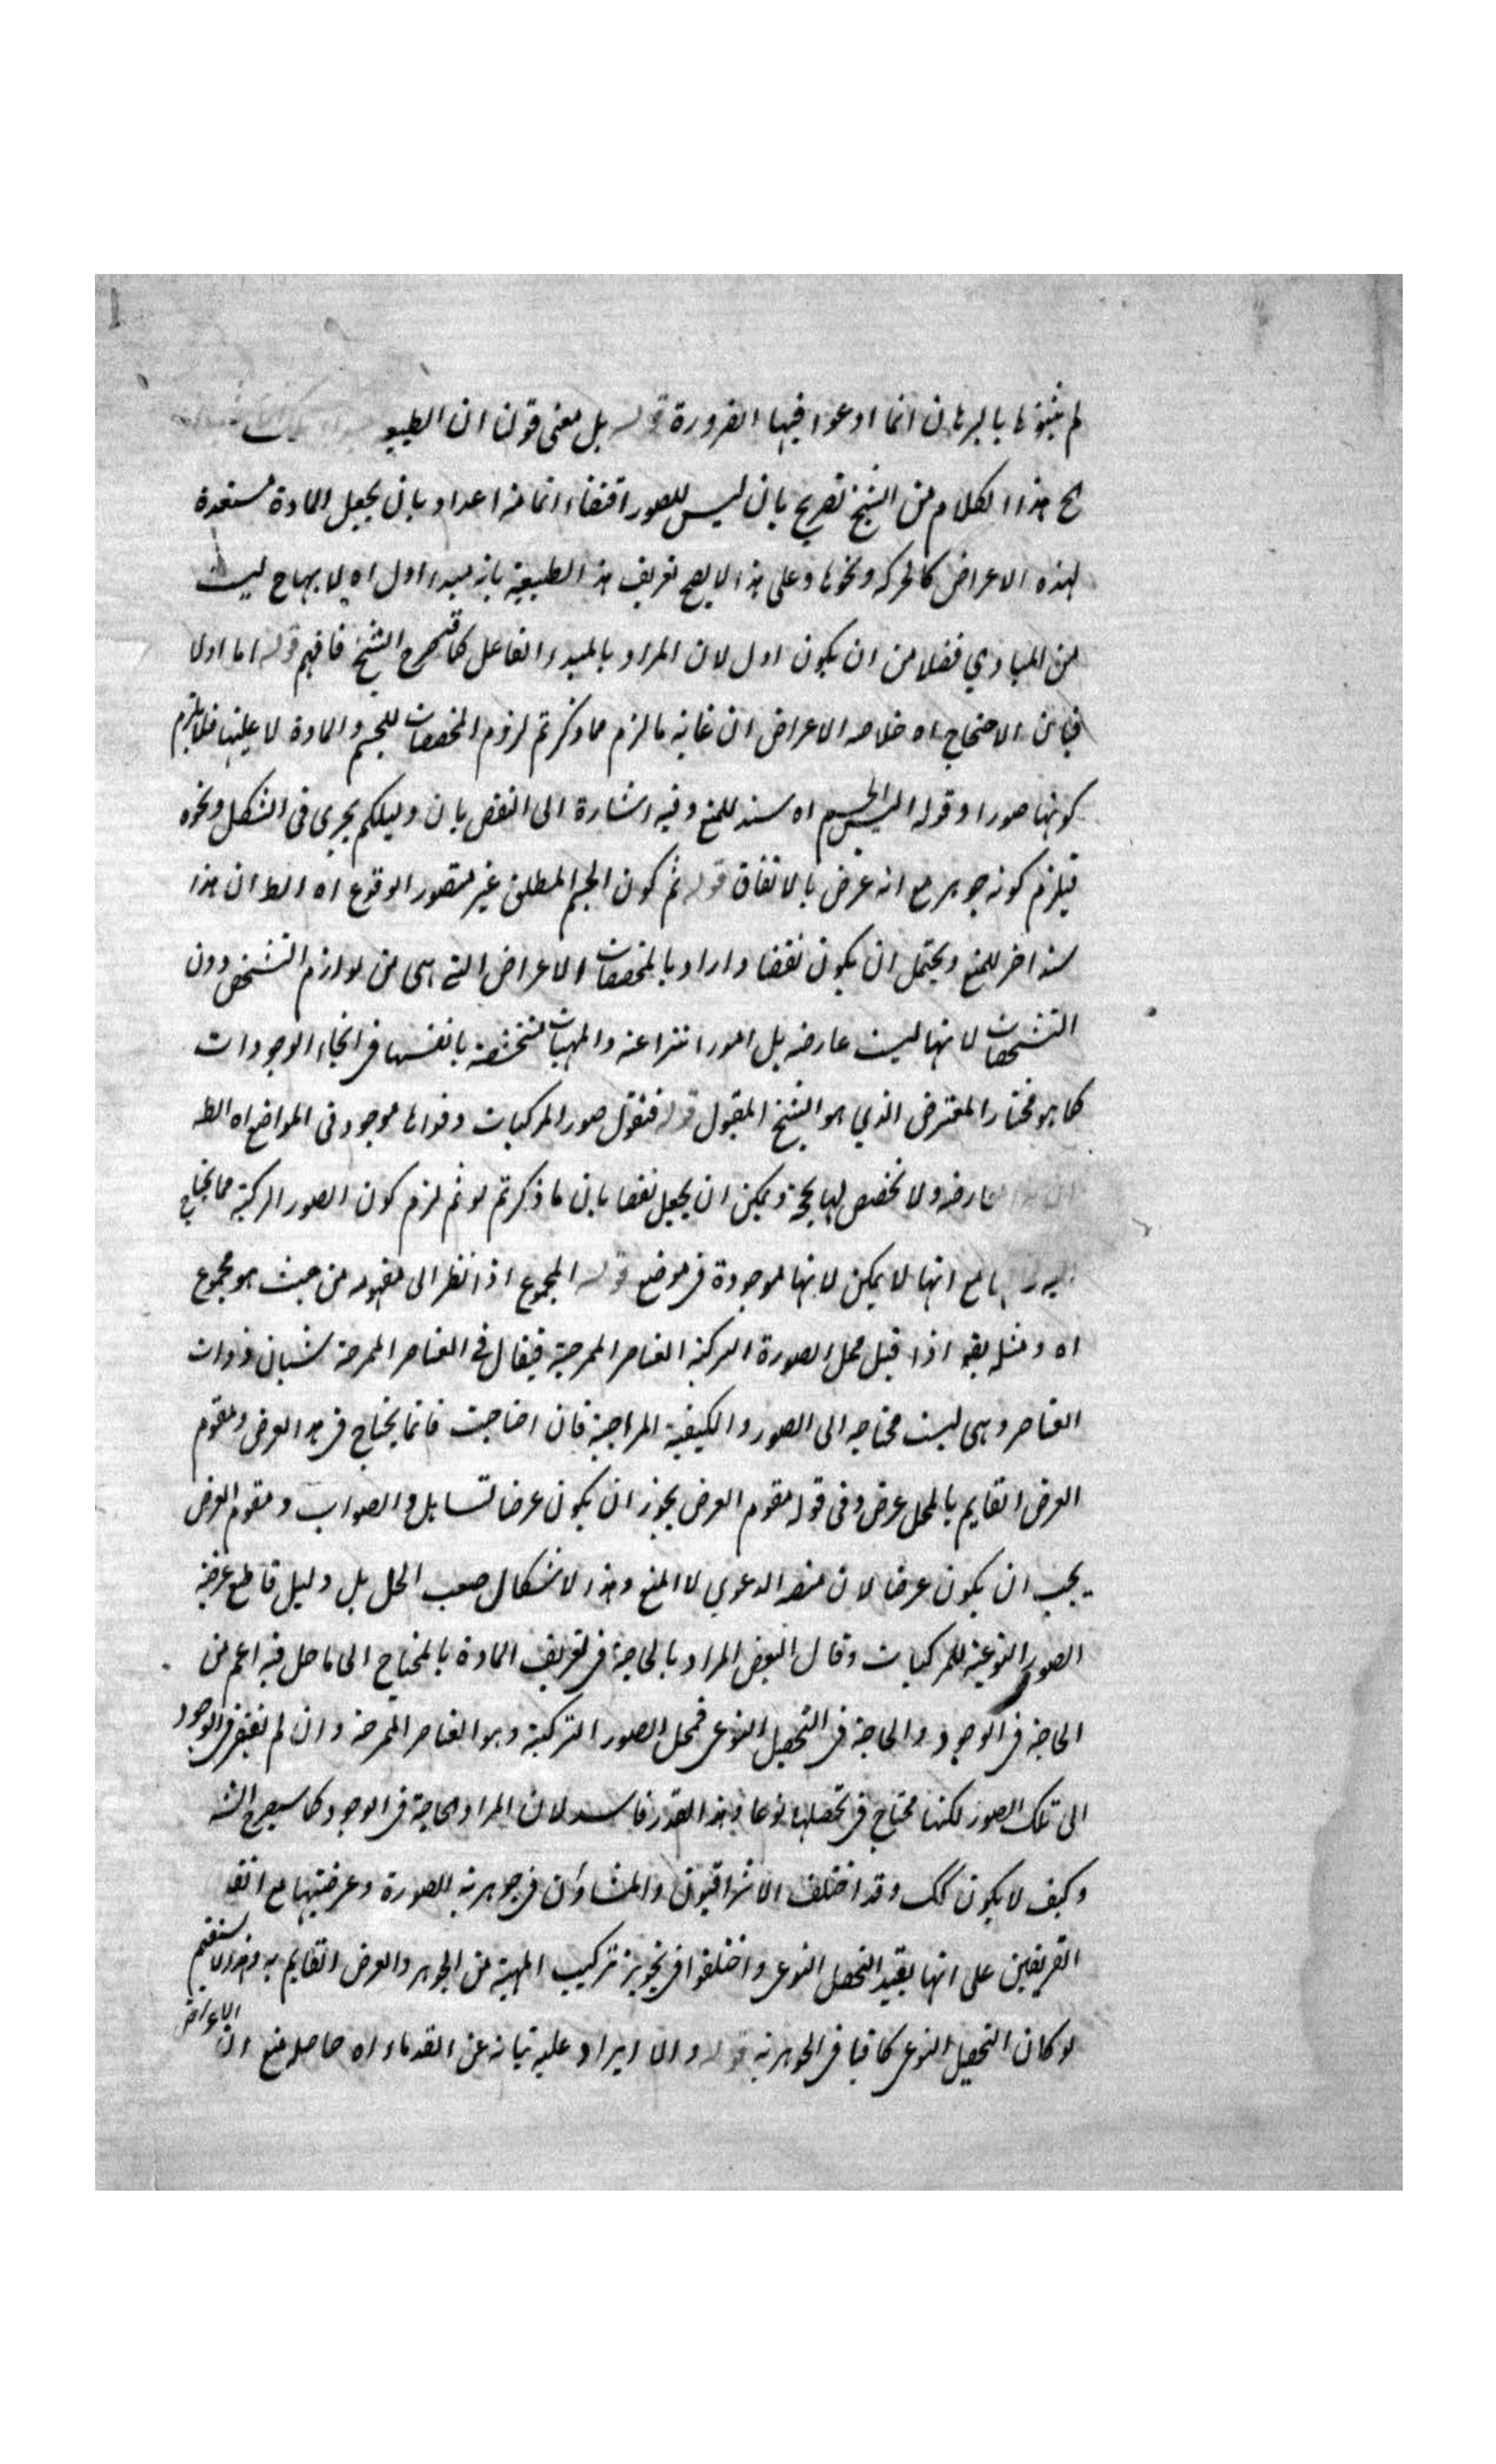 لم يثبتوها بالبرهان انما ادعوا فيها الضرورة قوله بل معنى قولنا ان الطبيعة
هذا الكلام من الشيخ تصريح بان ليس للصور اقتضاء انما منه اعداد بان يجعل المادة مستعدة
لهذه الاعراض كالحركه ونحوها وعلى هذا لا يصح تعريف هذه الطبيعية بانه مبدء اول اه لانها ح ليست
من المبادي فضلا من ان يكون اول لان المراد بالمبدء الفاعل كما صرح الشيخ فافهم قوله اما اولا
فبان الاحتياج اه خلاصه الاعراض ان غاية ما لزم مما ذكرتم لزوم المخصصات للجسم والمادة لا عليتها فلا يلزم
كونها صورا وقوله اليس الجسم اه سند للمنع وفيه اشارة الى النقض بان دليلكم يجرى فى الشكل ونحوه
فيلزم كونه جوهر مع انه عرض بالاتفاق قوله ثم كون الجسم المطلق غير متصور الوقوع اه الظ ان هذا
سند اخر للمنع ويحتمل ان يكون نقضا واراد بالمخصصات الاعراض التى هى من لوازم التشخص دون
التشخصات لانها ليست عارضه بل امور انتزاعيه والمهيات متشخصة بانفسها فى انحاء الوجودات
كما هو مختار المعترض الذي هو الشيخ المقبول قوله فنقول صور المركبات وقواها موجود فى المواضع اه الظ
ولا تخصيص لها بحجة ويمكن ان يجعل نقضا بان ما ذكرتم لو تم لزم كون الصور المركبة مما يحتاج
مع انها لا يمكن لانها موجودة فى موضع قوله المجموع اذا نظر الى مفهومه من حيث هو مجموع
اه ومثله يقه اذا قيل محل الصورة التركبية العناصر الممزجية فيقال فى العناصر الممزجة شيئان ذوات
العناصر وهى ليست محتاجه الى الصور والكيفية المزاجية فان احتاجت فانما يحتاج فى هذا العرض ومقوم
العرض القايم بالمحل عرض وفى قوله مقوم العرض يجوز ان يكون عرضا تساهل والصواب ومقوم العرض
يجب ان يكون عرضا لان منصبه الدعوى لا المنع وهذا الاشكال صعب الحل بل دليل قاطع عرضية
الصور النوعية للمركبات وقال البعض المراد بالحاجة فى تعريف المادة بالمحتاج الى ما حل فيه اعم من
الحاجة فى الوجود والحاجة فى التحصيل النوعى فمحل الصور التركبية وهو العناصر الممزجة وان لم تفتقر فى الوجود
الى تلك الصور لكنها محتاج فى تحصلها نوعا وهذا القدر فاسد لان المراد الحاجة فى الوجود كما سيصرح الشه
وكيف لا يكون كك وقد اختلف الاشراقيون والمشاؤن فى جوهرية الصورة وعرضيتها مع اتفاق
الفريقين على انها يفيد التحصل النوعى واختلفوا فى تجويز تركيب المهية من الجوهر والعرض القايم به وهذا لا يستقيم
لو كان التحصيل النوعى كافيا فى الجوهرية قوله والايراد عليه نيابة عن القدماء اه حاصله منع ان الاعراض